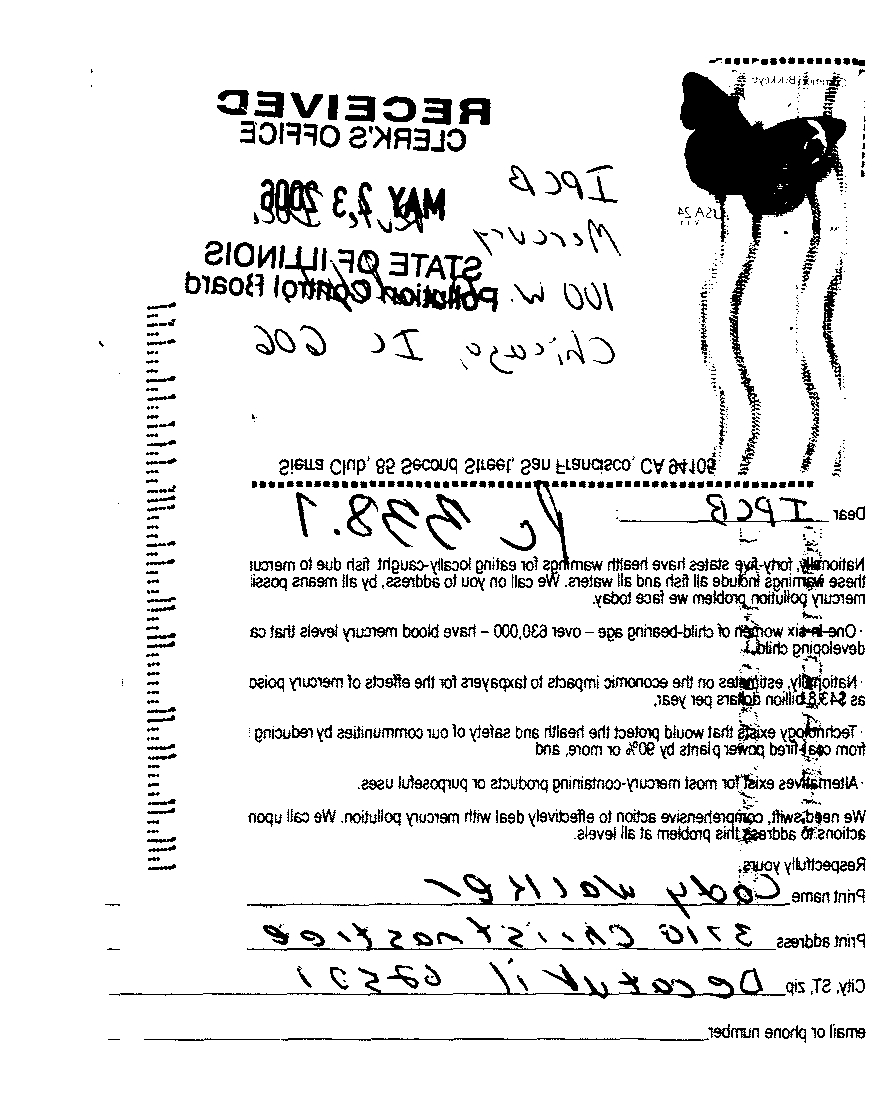 RECEIVED
CLERK'S OFFICE
MAY 23 2006
STATE OF ILLINOIS
Pollution Control Board
IPCB
Mercury
100 W.
Chicago, IL 606
USA 24
Sierra Club, 85 Second Street, San Francisco, CA 94105
Dear IPCB
Pc 338.1
Nationally, forty-five states have health warnings for eating locally-caught fish due to mercu
these warnings include all fish and all waters. We call on you to address, by all means possi
mercury pollution problem we face today.
· One in six women of child-bearing age – over 630,000 – have blood mercury levels that ca
developing child.
· Nationally, estimates on the economic impacts to taxpayers for the effects of mercury poiso
as $43.8 billion dollars per year,
· Technology exists that would protect the health and safety of our communities by reducing
from coal-fired power plants by 90% or more, and
· Alternatives exist for most mercury-containing products or purposeful uses.
We need swift, comprehensive action to effectively deal with mercury pollution. We call upon
actions to address this problem at all levels.
Respectfully yours,
Print name Cody walker
Print address 3710 Christmastree
City, ST, zip Decatur il 62521
email or phone number